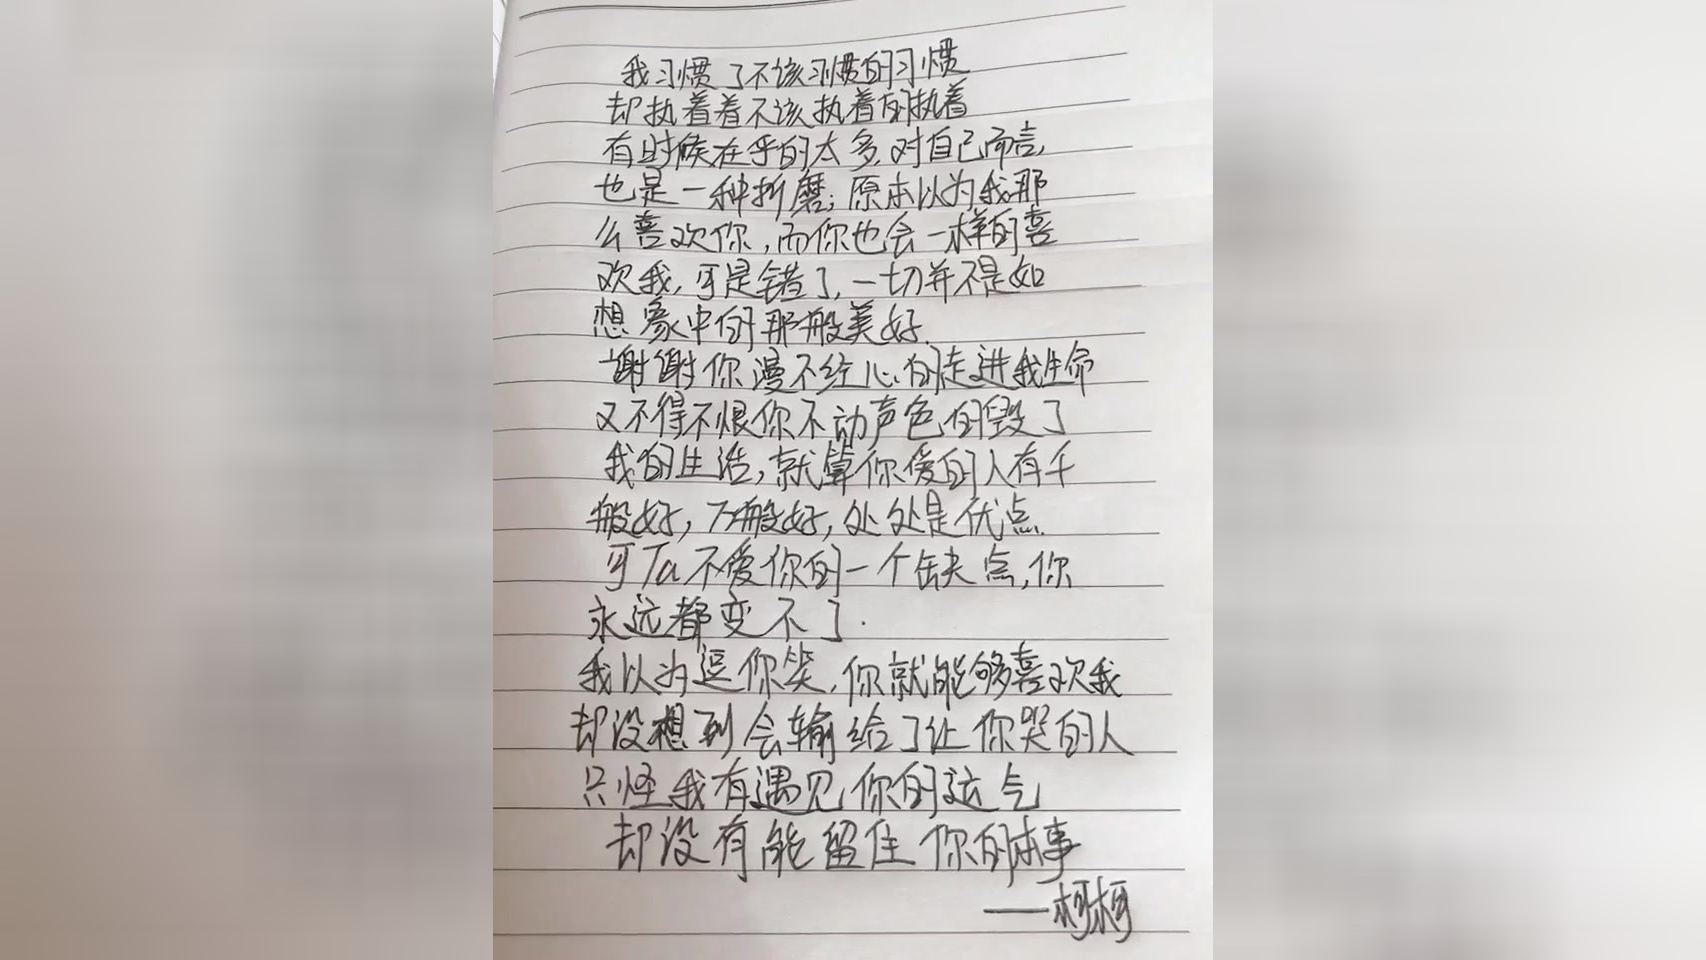 我习惯了不该习惯的习惯
却执着着不该执着的执着
有时候在乎的太多,对自己而言,
也是一种折磨;原本以为我那
么喜欢你,而你也会一样的喜
欢我,可是错了,一切并不是如
想象中的那般美好.
谢谢你漫不经心的走进我生命
又不得不恨你不动声色的毁了
我的生活,就算你爱的人有千
般好,万般好,处处是优点.
可Ta不爱你的一个缺点,你
永远都变不了.
我以为逗你笑,你就能够喜欢我
却没想到会输给了让你哭的人
只怪我有遇见你的运气
却没有能留住你的本事
——柯柯